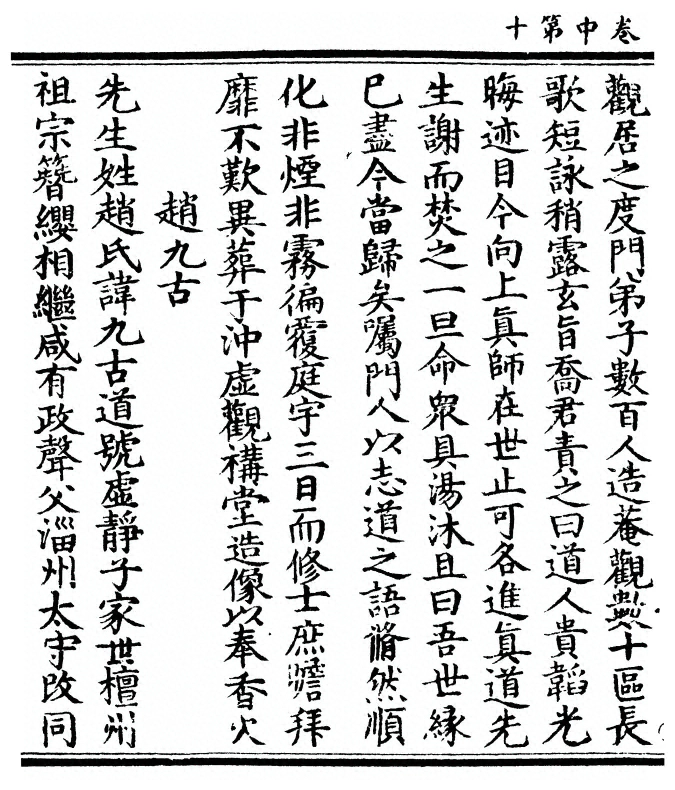 卷中第十
觀居之度門弟子數百人造菴觀數十區長
歌短詠稍露玄旨喬君責之曰道人貴韜光
晦迹目今向上眞師在世止可各進眞道先
生謝而焚之一旦命衆具湯沐且曰吾世緣
已盡今當歸矣囑門人以志道之語翛然順
化非煙非霧徧覆庭宇三日而修士庶瞻拜
靡不歎異葬于沖虛觀構堂造像以奉香火
趙九古
先生姓趙氏諱九古道號虛靜子家世檀州
祖宗簪纓相繼咸有政聲父淄州太守改同